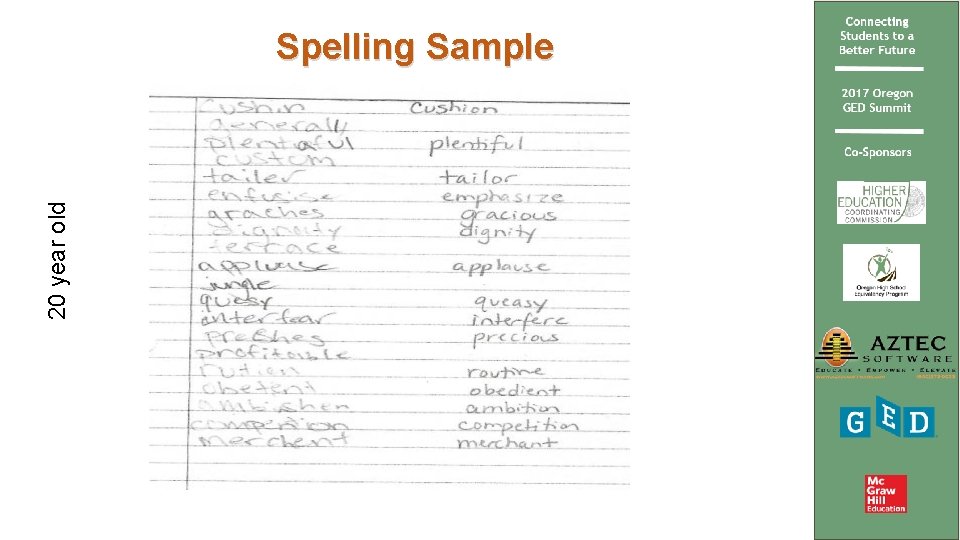 Spelling Sample
20 year old
Cushin cushion
generally
plentiaful plentiful
custum
tailer tailor
enfusise emphasize
graches gracious
dignoity dignity
terrace
applwase applause
jungle
quesy queasy
interfear interfere
preshes precious
profitoible
rutien routine
obetent obedient
ambishen ambition
competion competition
merchent merchant
Connecting
Students to a
Better Future
2017 Oregon
GED Summit
Co-Sponsors
HIGHER
EDUCATION
COORDINATING
COMMISSION
Oregon High School
Equivalency Program
AZTEC
SOFTWARE
EDUCATE • EMPOWER • ELEVATE
GED
Mc
Graw
Hill
Education